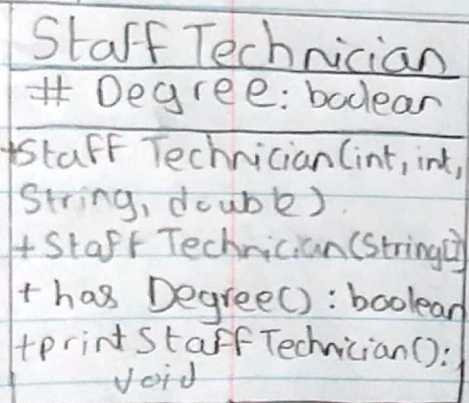 Staff Technician
# Degree: boolean
+Staff Technician(int, int,
String, double)
+ Staff Technician(String[]
+ has Degree() : boolean
+printStaffTechnician():
void